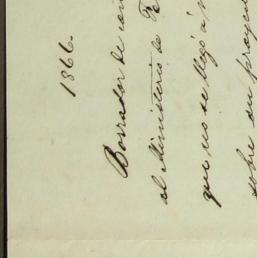 1866.
Borrador de
al Ministerio de Fo
que no se llegó á
sobre su proyec